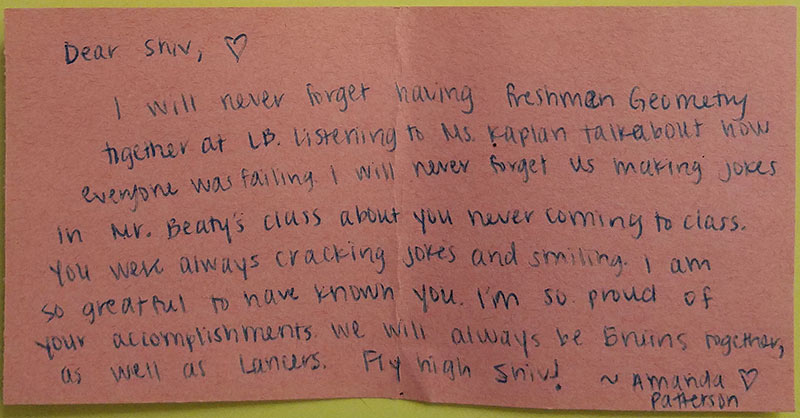 Dear Shiv, ♡
I will never forget having freshman Geometry
together at LB. Listening to Ms. Kaplan talkabout how
everyone was failing. I will never forget us making jokes
in Mr. Beaty's class about you never coming to class.
You were always cracking jokes and smiling. I am
so greatful to have known you. I'm so proud of
your accomplishments. We will always be Bruins together,
as well as Lancers. Fly high Shiv! ~ Amanda ♡
Patterson